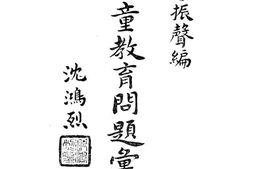 振聲編
童教育問題彙
沈鴻烈